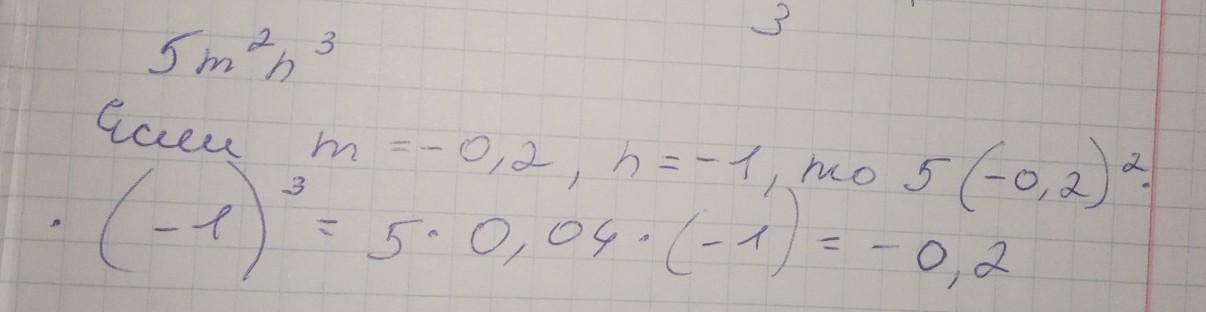 3
5m²n³
Если m = -0,2, n = -1, то 5(-0,2)²·
·(-1)³ = 5·0,04·(-1) = -0,2